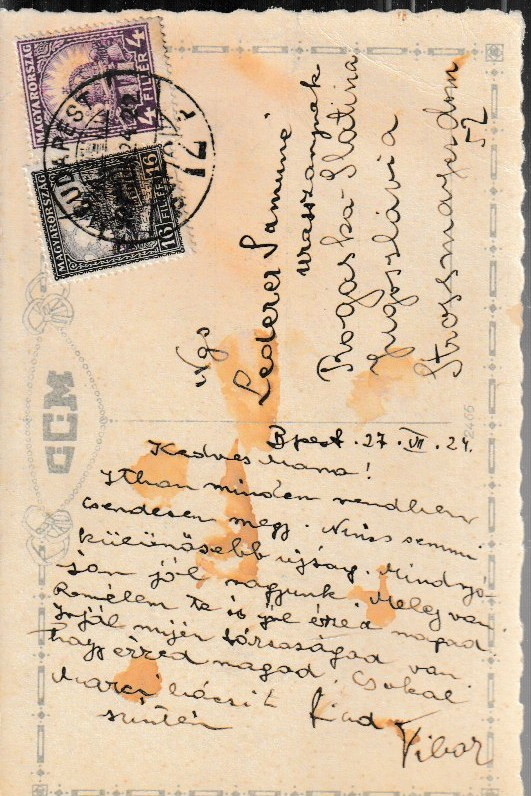 MAGYARORSZÁG
4 FILLÉR 4
MAGYARORSZÁG
16 FILLÉR 16
BUDAPEST
Ngs
Lederer Samuné
urasszonynak
Rogaska-Slatina
Jugoslavia
Strossmayerdom
52
CCM
2466
Bpest. 27. VII. 24.
Kedves Mama!
Itthon minden rendben
csendesen megy. Nincs semmi
különösebb újság. Mindnyá-
jan jól vagyunk. Meleg van.
Remélem te is jól érzed magad.
Irjál milyen társaságod van
hogy érzed magad. Csókol
Marci bácsit
szintén Fiad
Tibor